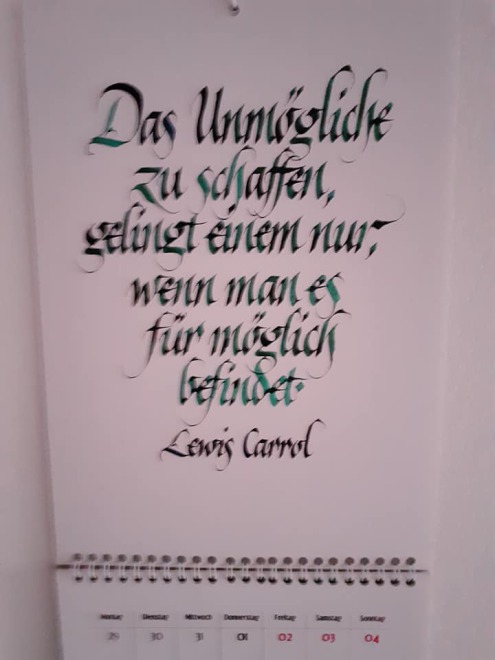 Das Unmögliche
zu schaffen,
gelingt einem nur,
wenn man es
für möglich
befindet.
Lewis Carrol
Montag Dienstag Mittwoch Donnerstag Freitag Samstag Sonntag
29 30 31 01 02 03 04